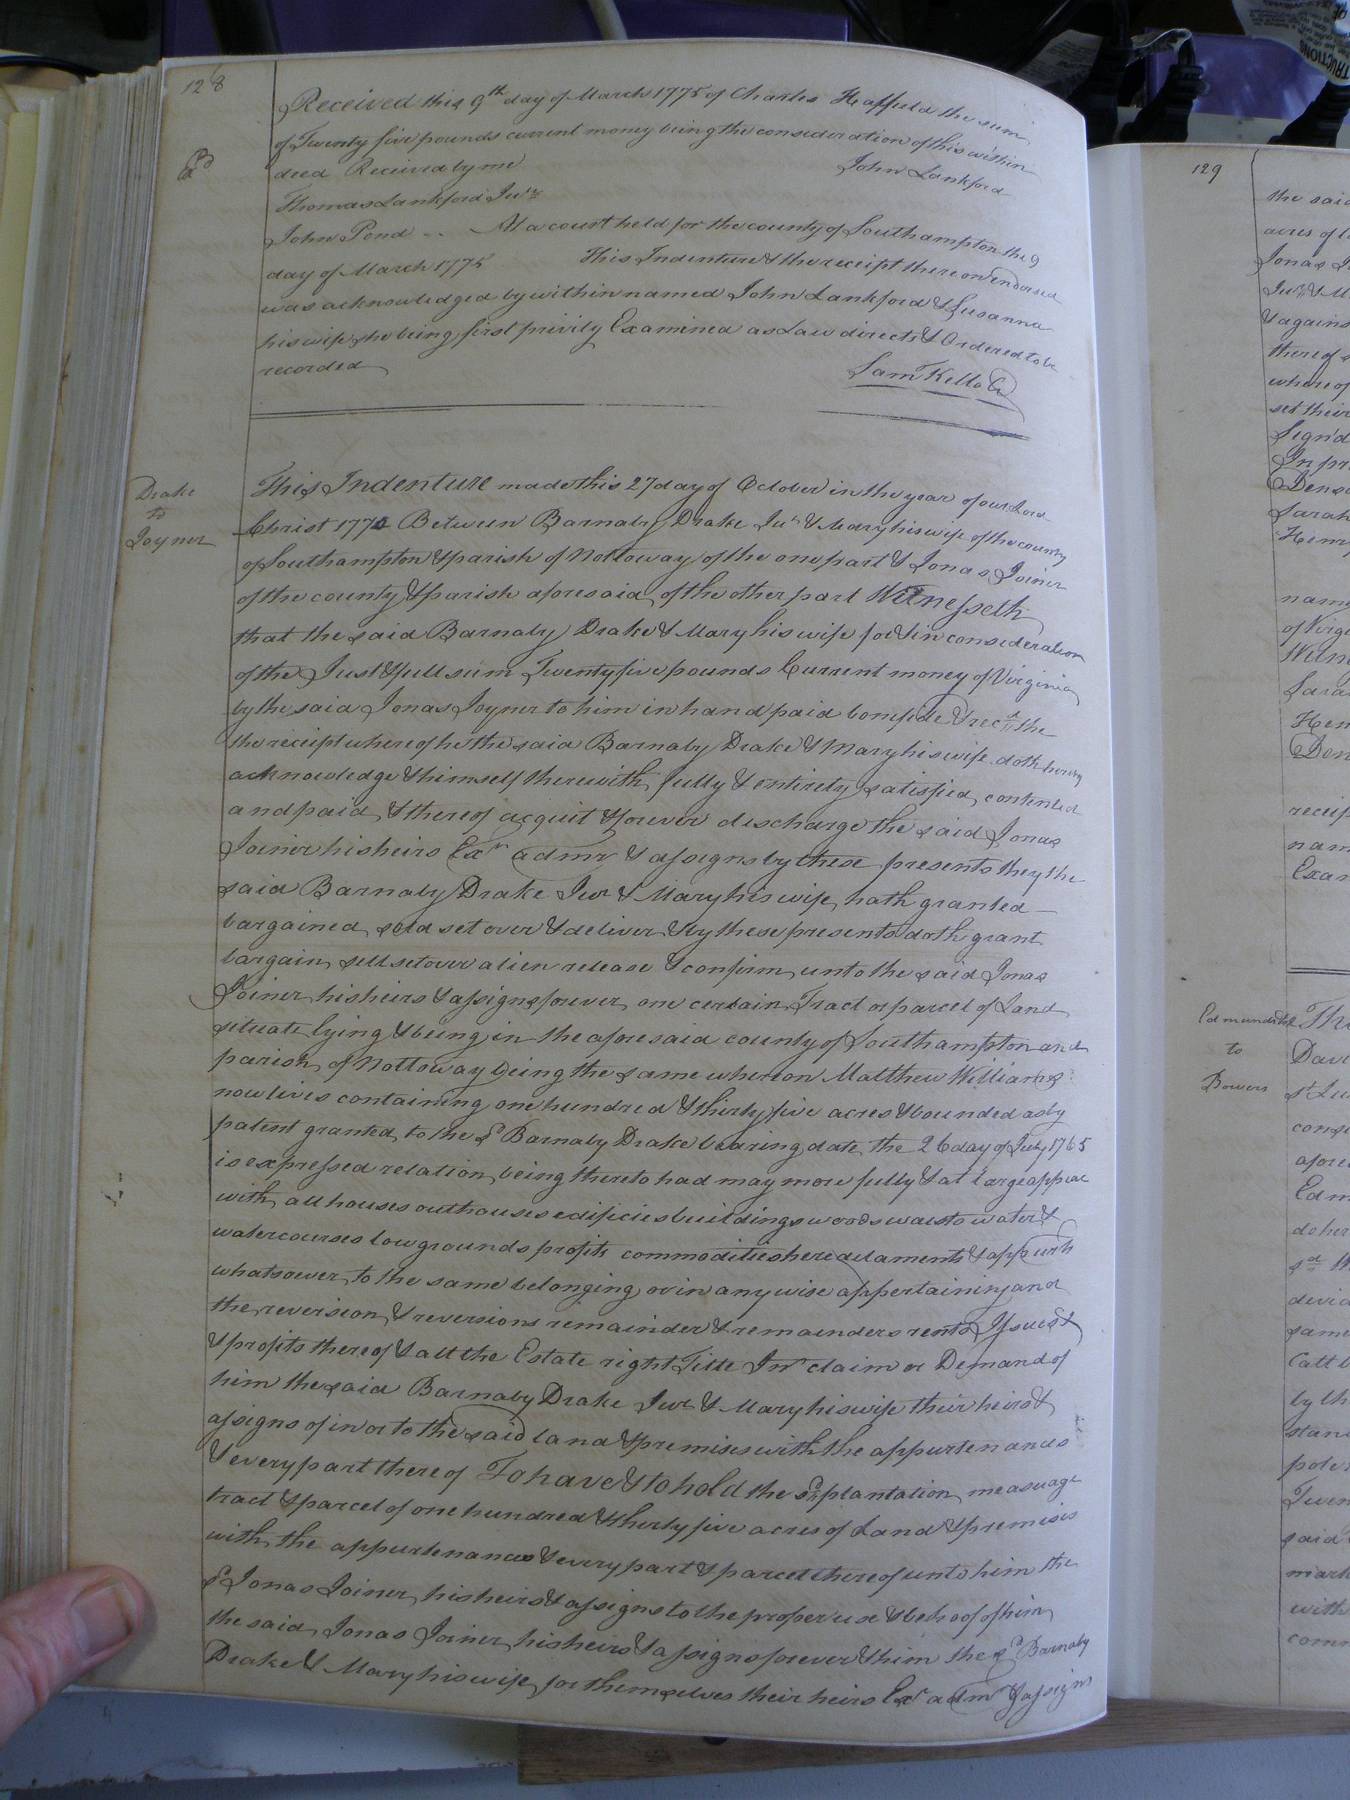 128
Received this 9th day of March 1775 of Charles Happeld the sum
of Twenty five pounds current money being the consideration of this within
deed Received by me John Lankford
Thomas Lankford Junr
John Pond -- At a court held for the county of Southampton the 9
day of March 1775 This Indenture & the receipt thereon endorsed
was acknowledged by within named John Lankford & Susanna
his wife she being first privily Examined as Law directs & Ordered to be
recorded
Sam Kello C
Drake
to
Joyner
This Indenture made this 27 day of October in the year of our Lord
Christ 1774 Between Barnaby Drake Junr & Mary his wife of the county
of Southampton & parish of Nottoway of the one part & Jonas Joiner
of the county & parish aforesaid of the other part Witnesseth
that the said Barnaby Drake & Mary his wife for & in consideration
of the Just & full sum Twenty five pounds Current money of Virginia
by the said Jonas Joyner to him in hand paid bonifide & recd the
the receipt whereof he the said Barnaby Drake & Mary his wife doth hereby
acknowledge & himself therewith fully & entirely satisfied, contented
and paid & thereof acquit & forever discharge the said Jonas
Joiner his heirs Exr admr & assigns by these presents they the
said Barnaby Drake Junr & Mary his wife hath granted
bargained sold set over & deliver & by these presents doth grant
bargain sell set over alien release & confirm unto the said Jonas
Joiner his heirs & assigns forever one certain Tract or parcel of Land
situate lying & being in the aforesaid county of Southampton and
parish of Nottoway being the same whereon Matthew Williams
now lives containing one hundred & thirty five acres & bounded as by
patent granted to the sd Barnaby Drake bearing date the 26 day of July 1765
is expressed relation being thereto had may more fully & at large appear
with all houses outhouses edificies buildings woods waists water &
watercourses low grounds profits commodities heredetaments & appurts
whatsoever to the same belonging or in any wise appertaining and
the reversion & reversions remainder & remainders rents Issues &
& profits thereof & all the Estate right Title Inr claim or Demand of
him the said Barnaby Drake Junr & Mary his wife their heirs &
assigns of in or to the said land & premises with the appurtenances
& every part there of To have & to hold the sd plantation measuage
tract & parcel of one hundred & thirty five acres of Land & premises
with the appurtenances & every part & parcel thereof unto him the
sd Jonas Joiner his heirs & assigns to the proper use & behoof of him
the said Jonas Joiner his heirs & assigns forever & him the sd Barnaby
Drake & Mary his wife for themselves their heirs Exr admr & assigns
129
the said
acres of
Jonas
& agains
thereof
where of
set their
Sign'd
In pr
Sarah
nam
of Virg
Sara
Hen
receip
nam
Exa
to
Bowers
Thi
Davi
cons
afore
Edm
sd
same
by th
stan
Twen
said
mark
with